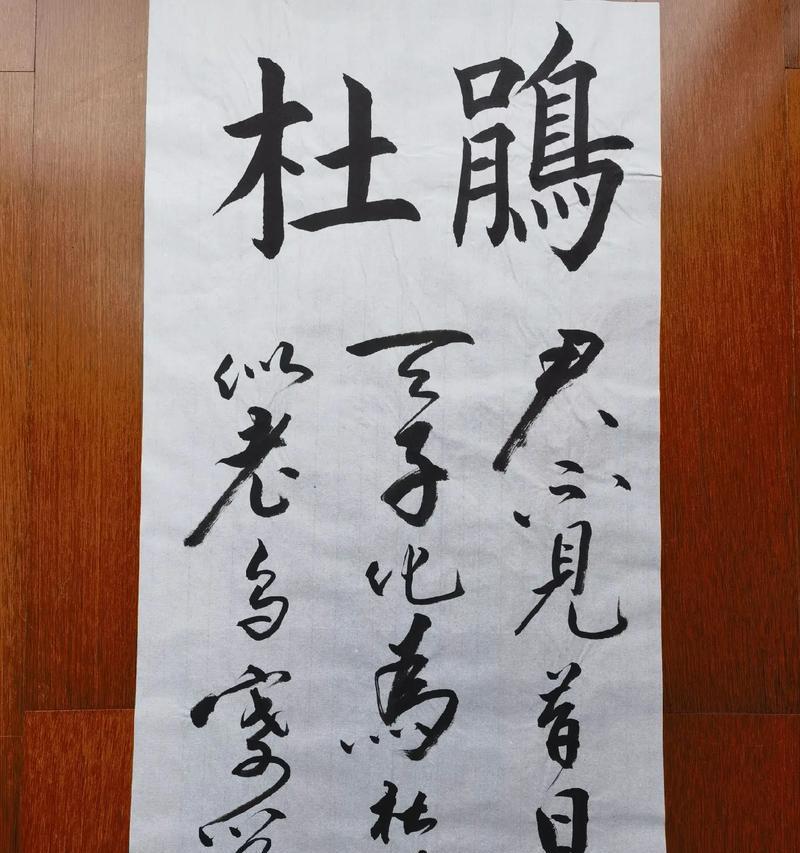 杜鵑
君不見昔日
天子化為杜
似老乌寄